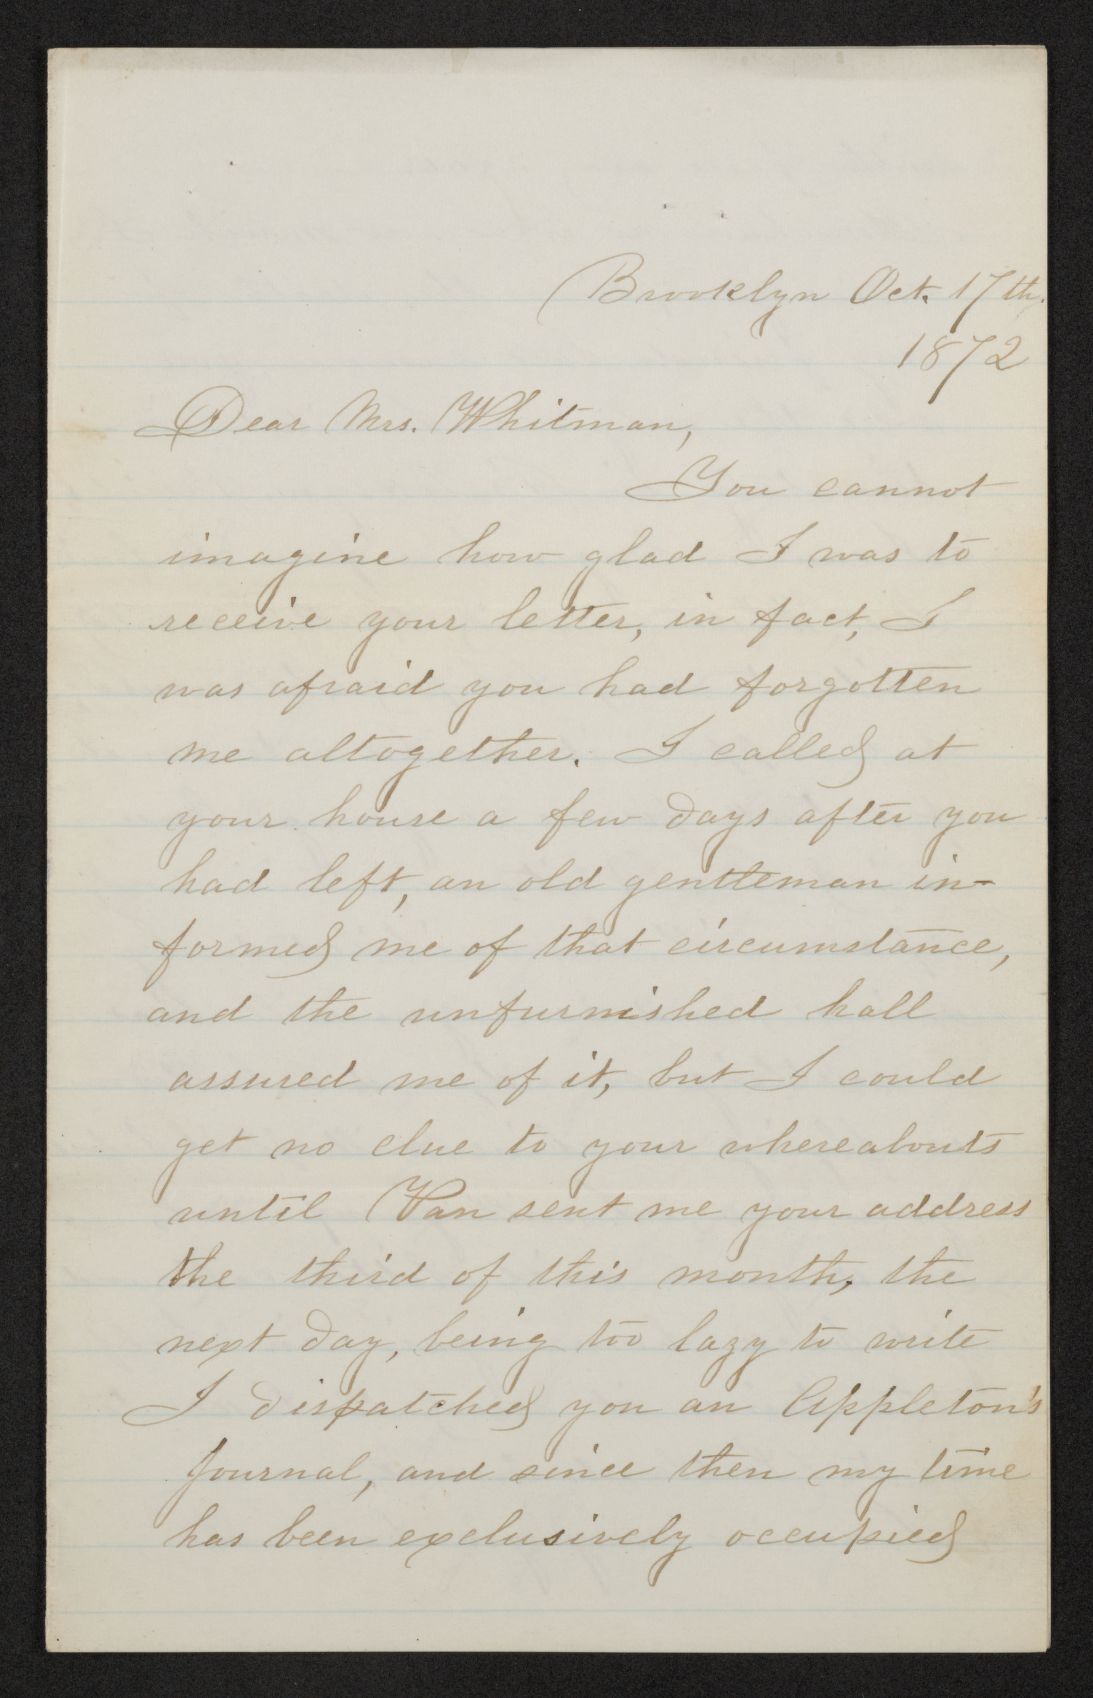 Brooklyn Oct. 17th.
1872
Dear Mrs. Whitman,
You cannot
imagine how glad I was to
receive your letter, in fact, I
was afraid you had forgotten
me altogether. I called at
your house a few days after you
had left, an old gentleman in-
formed me of that circumstance,
and the unfurnished hall
assured me of it, but I could
get no clue to your whereabouts
until Van sent me your address
the third of this month, the
next day, being too lazy to write
I dispatched you an Appleton's
Journal, and since then my time
has been exclusively occupied